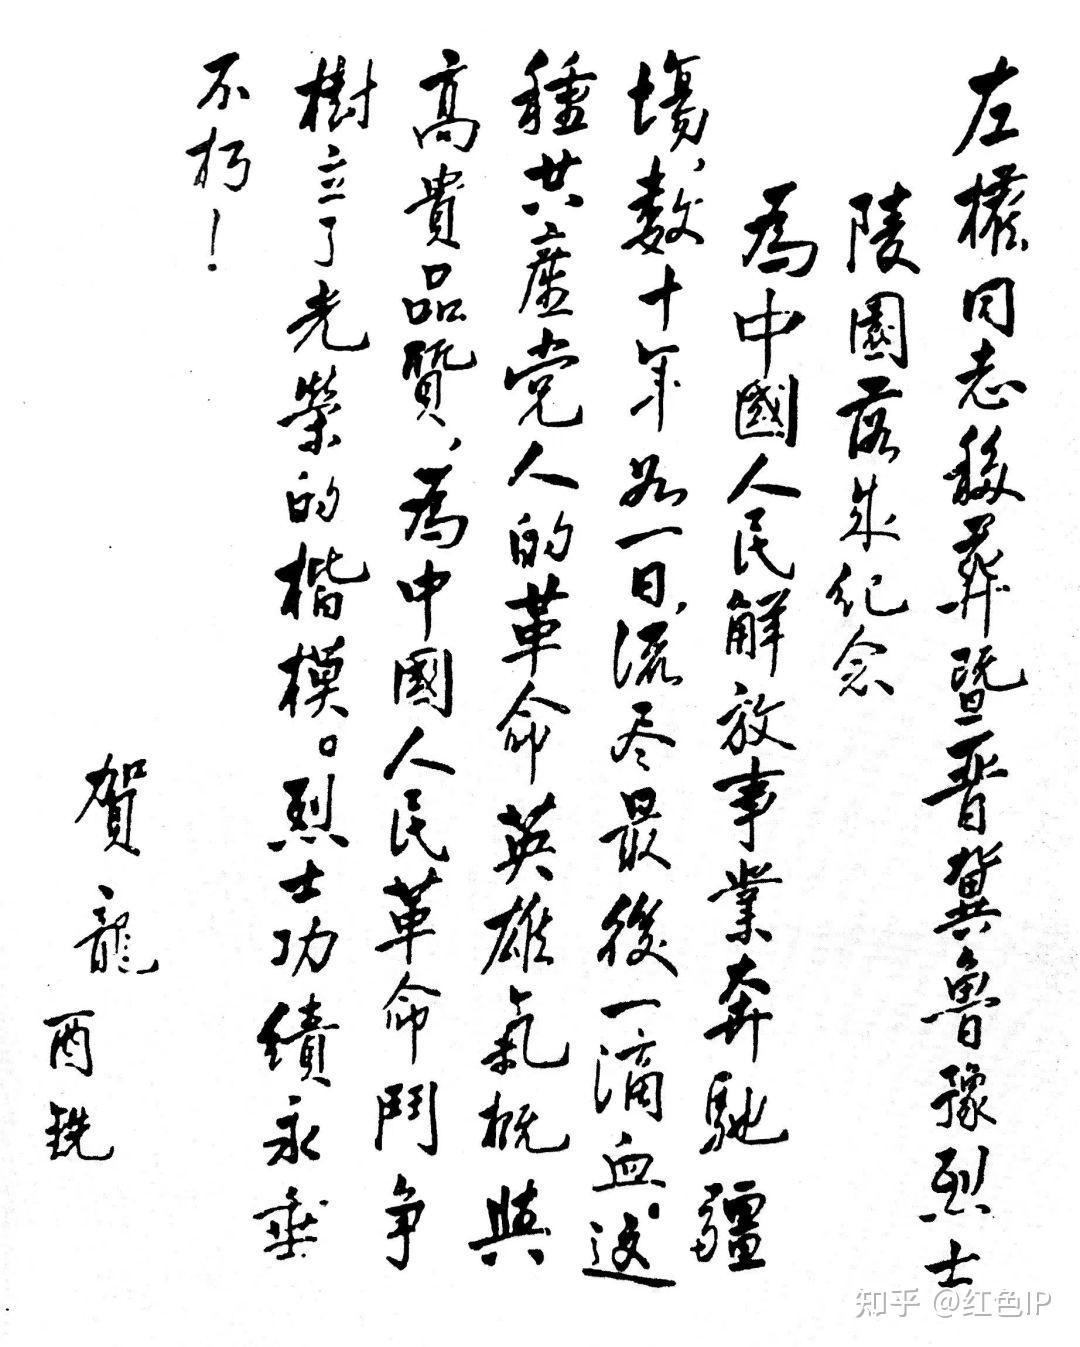 左權同志移葬暨晋冀魯豫烈士
陵園落成纪念
為中國人民解放事業奔馳疆
塲，数十年如一日，流尽最後一滴血。这
種共產党人的革命英雄氣概與
高貴品質，為中國人民革命鬥争
樹立了光榮的楷模。烈士功績永垂
不朽！
賀龍
酉铣
知乎 @红色IP